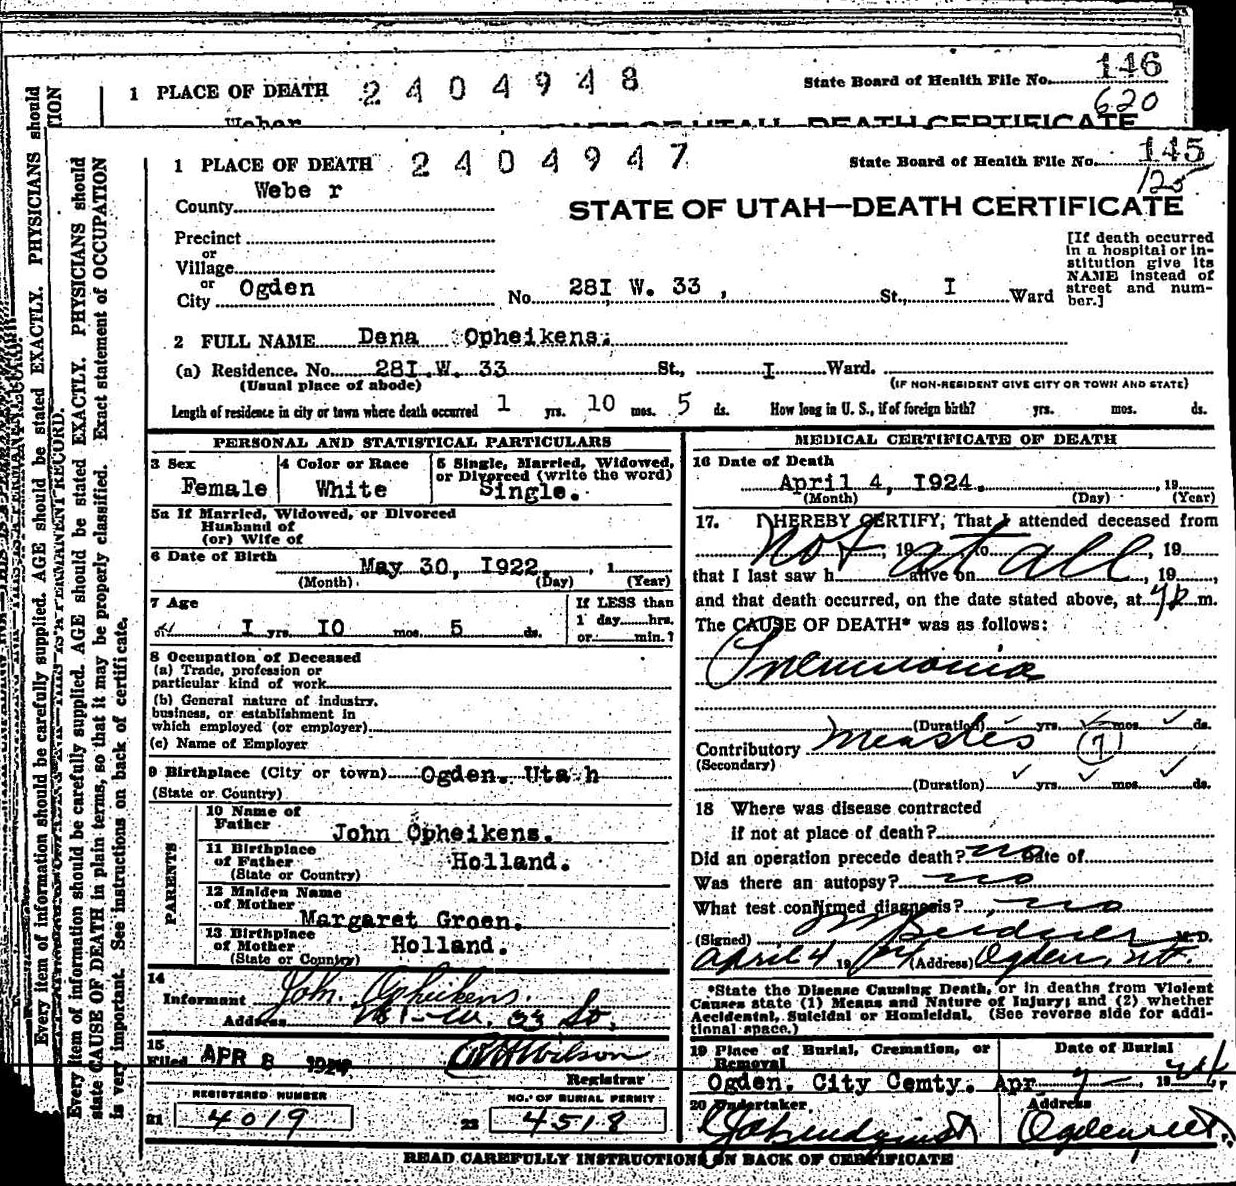 1 PLACE OF DEATH 2404948 State Board of Health File No. 146
620
Weber STATE OF UTAH—DEATH CERTIFICATE
1 PLACE OF DEATH 2404947 State Board of Health File No. 145
125
County Webe r
STATE OF UTAH—DEATH CERTIFICATE
Precinct
or
Village
or
City Ogden No. 28I W. 33 , St., I Ward
[If death occurred
in a hospital or in-
stitution give its
NAME instead of
street and num-
ber.]
2 FULL NAME Dena Opheikens.
(a) Residence. No. 28I W. 33 St., I Ward.
(Usual place of abode) (IF NON-RESIDENT GIVE CITY OR TOWN AND STATE)
Length of residence in city or town where death occurred 1 yrs. 10 mos. 5 ds. How long in U. S., if of foreign birth? yrs. mos. ds.
PERSONAL AND STATISTICAL PARTICULARS
3 Sex Female
4 Color or Race White
5 Single, Married, Widowed,
or Divorced (write the word)
Single.
5a If Married, Widowed, or Divorced
Husband of
(or) Wife of
6 Date of Birth May 30, I922. , 1
(Month) (Day) (Year)
7 Age
I yrs. IO mos. 5 ds.
If LESS than
1 day hrs.
or min.?
8 Occupation of Deceased
(a) Trade, profession or
particular kind of work
(b) General nature of industry,
business, or establishment in
which employed (or employer)
(c) Name of Employer
9 Birthplace (City or town) Ogden. Utah
(State or Country)
PARENTS
10 Name of
Father John Opheikens.
11 Birthplace
of Father Holland.
(State or Country)
12 Maiden Name
of Mother
Margaret Groen.
13 Birthplace
of Mother Holland.
(State or Country)
14
Informant Joh. Opheikens.
Address W. 33 St.
15
Filed APR 8 1924 Wilson
Registrar
REGISTERED NUMBER
21 4019
NO. OF BURIAL PERMIT
22 4518
MEDICAL CERTIFICATE OF DEATH
16 Date of Death
April 4, I924. , 19
(Month) (Day) (Year)
17. I HEREBY CERTIFY, That I attended deceased from
not , 19 at to all , 19
that I last saw h alive on , 19 ,
and that death occurred, on the date stated above, at m.
The CAUSE OF DEATH* was as follows:
Pneumonia
(Duration) yrs. mos. ds.
Contributory Measles 7
(Secondary)
(Duration) yrs. mos. ds.
18 Where was disease contracted
if not at place of death?
Did an operation precede death? no Date of
Was there an autopsy? no
What test confirmed diagnosis? no
(Signed) M. D.
April 4 1924 (Address) Ogden, Ut.
*State the Disease Causing Death, or in deaths from Violent
Causes state (1) Means and Nature of Injury; and (2) whether
Accidental, Suicidal or Homicidal. (See reverse side for addi-
tional space.)
19 Place of Burial, Cremation, or
Removal
Ogden. City Cemty.
Date of Burial
Apr 7 — , 1924
20 Undertaker
Address
Ogden
READ CAREFULLY INSTRUCTIONS ON BACK OF CERTIFICATE
Every item of information should be carefully supplied. AGE should be stated EXACTLY. PHYSICIANS should
Every item of information should be carefully supplied. AGE should be stated EXACTLY. PHYSICIANS should
state CAUSE OF DEATH in plain terms, so that it may be properly classified. Exact statement of OCCUPATION
is very important. See instructions on back of certificate.